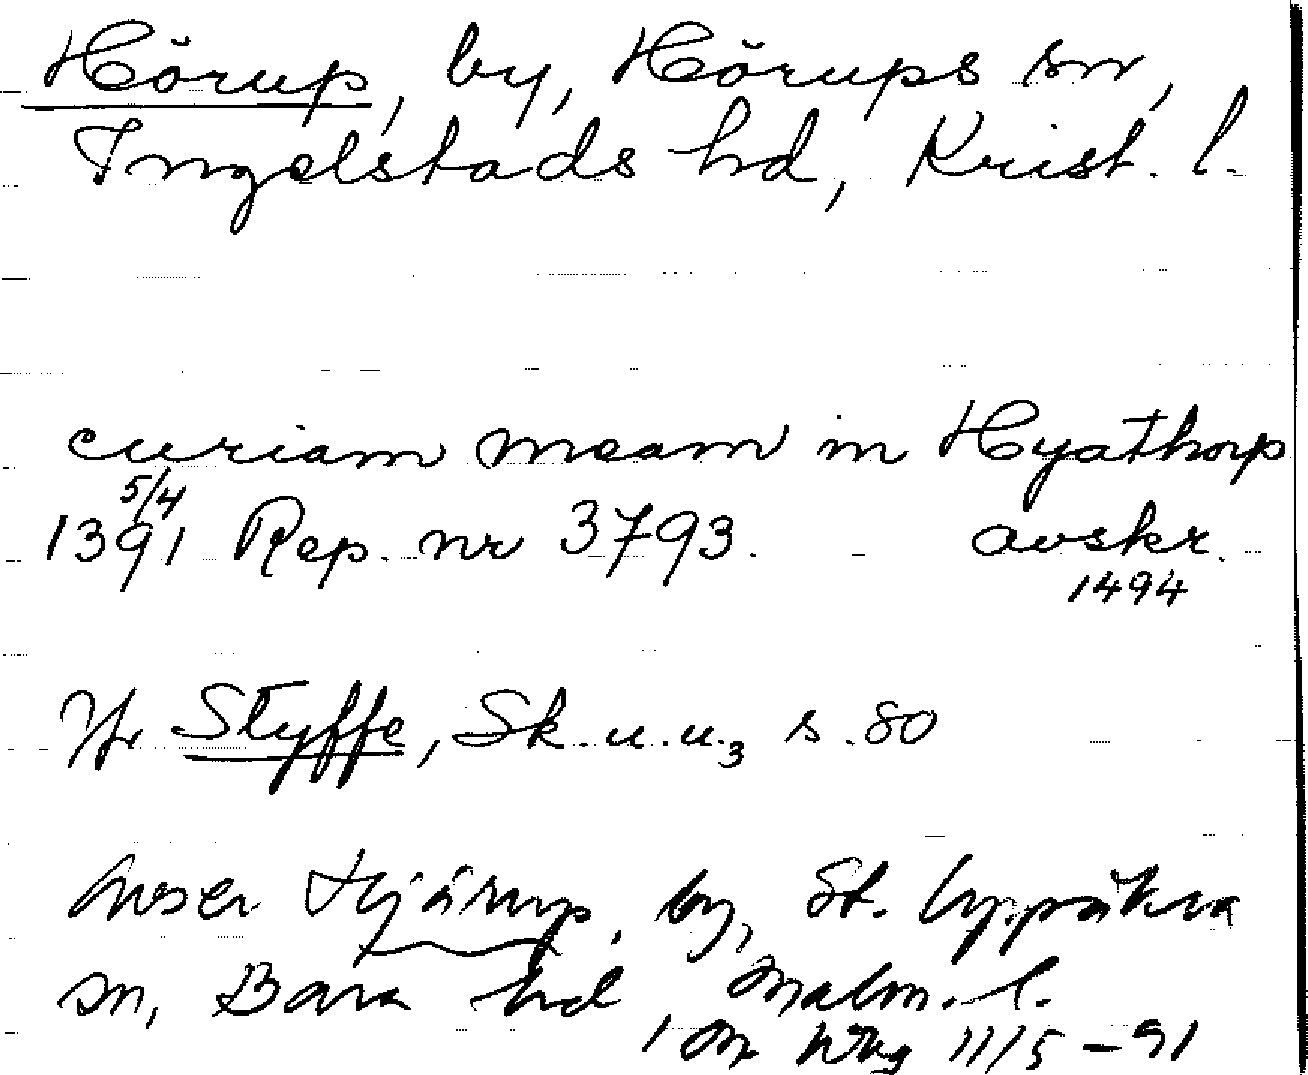 Hörup, by, Hörups sn,
Ingelstads hd, Krist. l.
curiam meam in Hyathorp
5/4
1391 Rep. nr 3793. avskr.
1494
Jfr Styffe, Sk.u.u.3 s. 80
Avser Hjärup, by, St. Uppåkra
sn, Bara hd Malm. l.
11/5 – 91